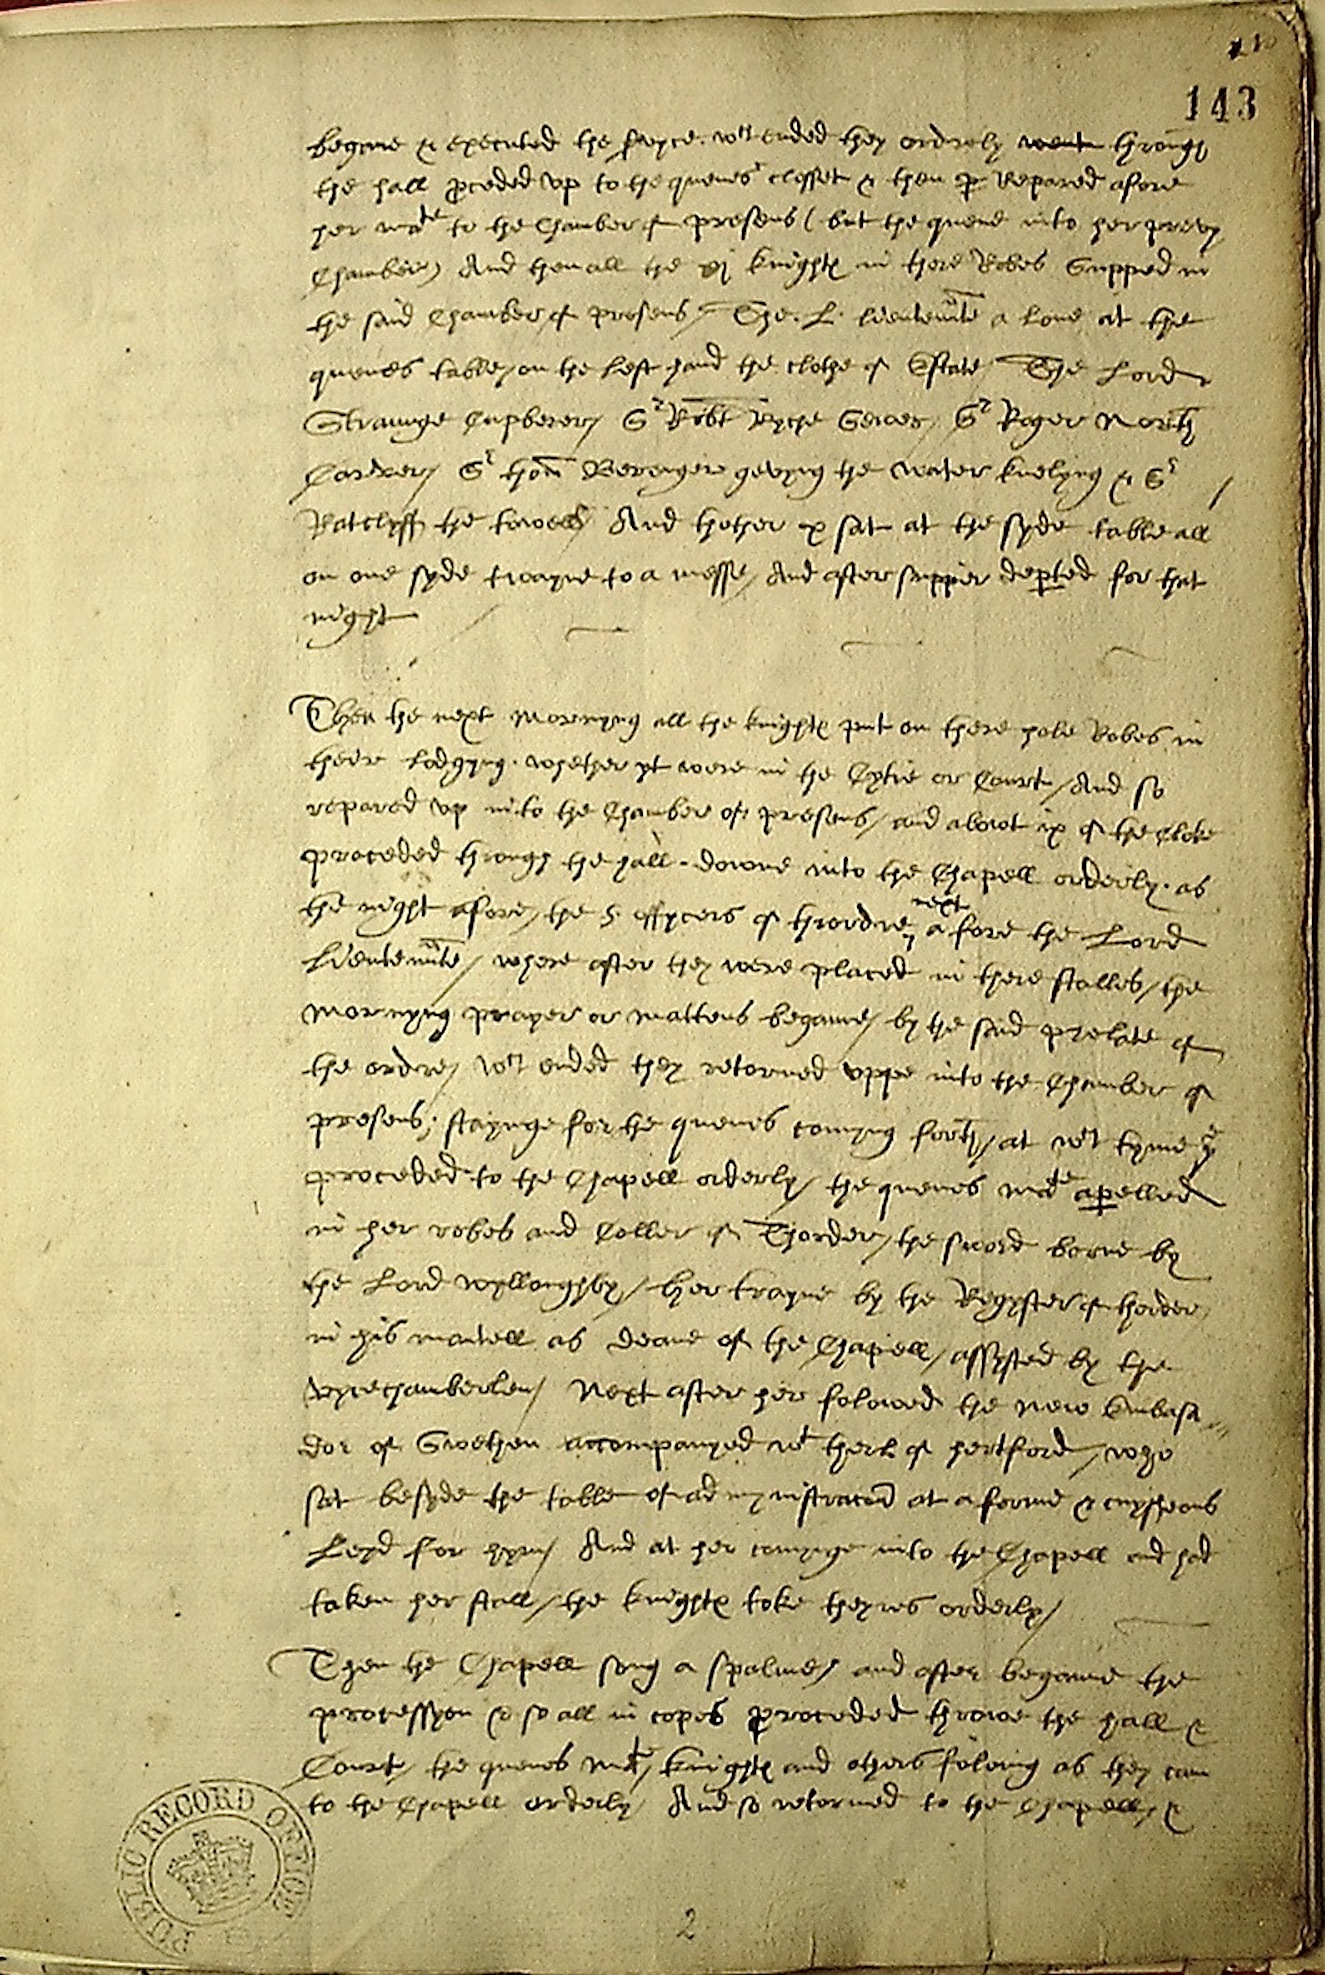 143
begane & executed the s'vyce. wch ended they orderly went throughe
the hall proceded vp to the quenes closset & then Repared afore
her matie to the Chamber of presens (but the quene into her prevy
Chamber) And then all the knightes in there Robes Supped in
the said Chamber of presens / The. L. lieutennte a lone at the
quenes table, on the left hand the clothe of Estate / The Lord
Straunge Cupberer / Sr Robt Ryche Sewer / Sr Roger North
Carver / Sr thom Berengere gevyng the water knelyng & Sr /
Ratclyff the towell / And thother x sat at the syde table all
on one syde twayne to a messe / And after supper depted for that
night
Then the next mornyng all the knightes put on there hole Robes in
there lodgyng. whether yt were in the Cytie or Court / And so
repared vp into the Chamber of presens / and abowt ix of the cloke
proceded through the hall downe into the Chapell orderly. as
the night afore / the 5 offycers of thordre next afore the Lord
Lieutennte / where after they were placed in there stalles / the
mornyng prayer or mattens begane / by the said prelate of
the ordre / wch ended they retorned vppe into the Chamber of
presens; stayinge for the quenes comyng forth / at wch tyme
proceded to the Chapell orderly / the quenes matie apelled
in her robes and Coller of Thorder / the sword borne by
the Lord wylloughby / her trayne by the Regyster of thorder
in his mantell as deane of the Chapell / assysted by the
vycechamberlen / Next after her folowed the new Embasa
dor of Swethen accompanyed wt therle of hertford / who
sat besyde the table of admynistracon at a forme & cuysheons
leyd for hym / And at her comynge into the Chapell and had
taken her stall / the knightes toke theyres orderly /
Then the Chapell song a spalme / and after begane the
processyon & so all in copes proceded throwe the hall &
Court / the quenes matie / knightes and others foloing as they cam
to the Chapell orderly / And so retorned to the Chapell / &
2
PUBLIC RECORD OFFICE